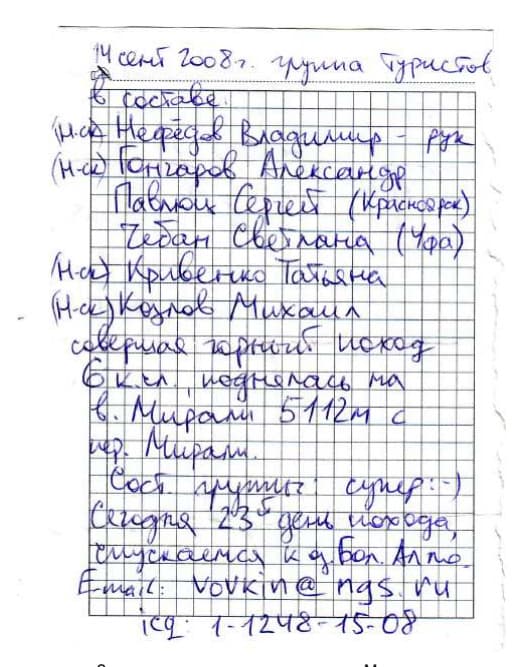 14 сент 2008г. группа туристов
в составе:
(Н-ск) Нефёдов Владимир - рук
(Н-ск) Гончаров Александр
Павлюк Сергей (Красноярск)
Чебан Светлана (Уфа)
(Н-ск) Кривенко Татьяна
(Н-ск) Козлов Михаил
совершая горный поход
6 к.сл., поднялась на
в. Мирали 5112м с
пер. Мирали.
Сост. группы: супер :-)
Сегодня 23й день похода,
спускаемся к д. Бол. Алло.
Email: vovkin@ngs.ru
icq: 1-1248-15-08